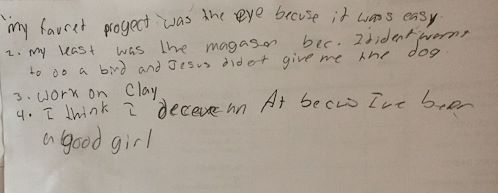 1. my favret progect was the eye becuse it was easy.
2. my least was the magason bec. I dident wornt
to do a bird and Jesus dident give me the dog
3. work on clay
4. I think I deceve an At becus I've been
a good girl